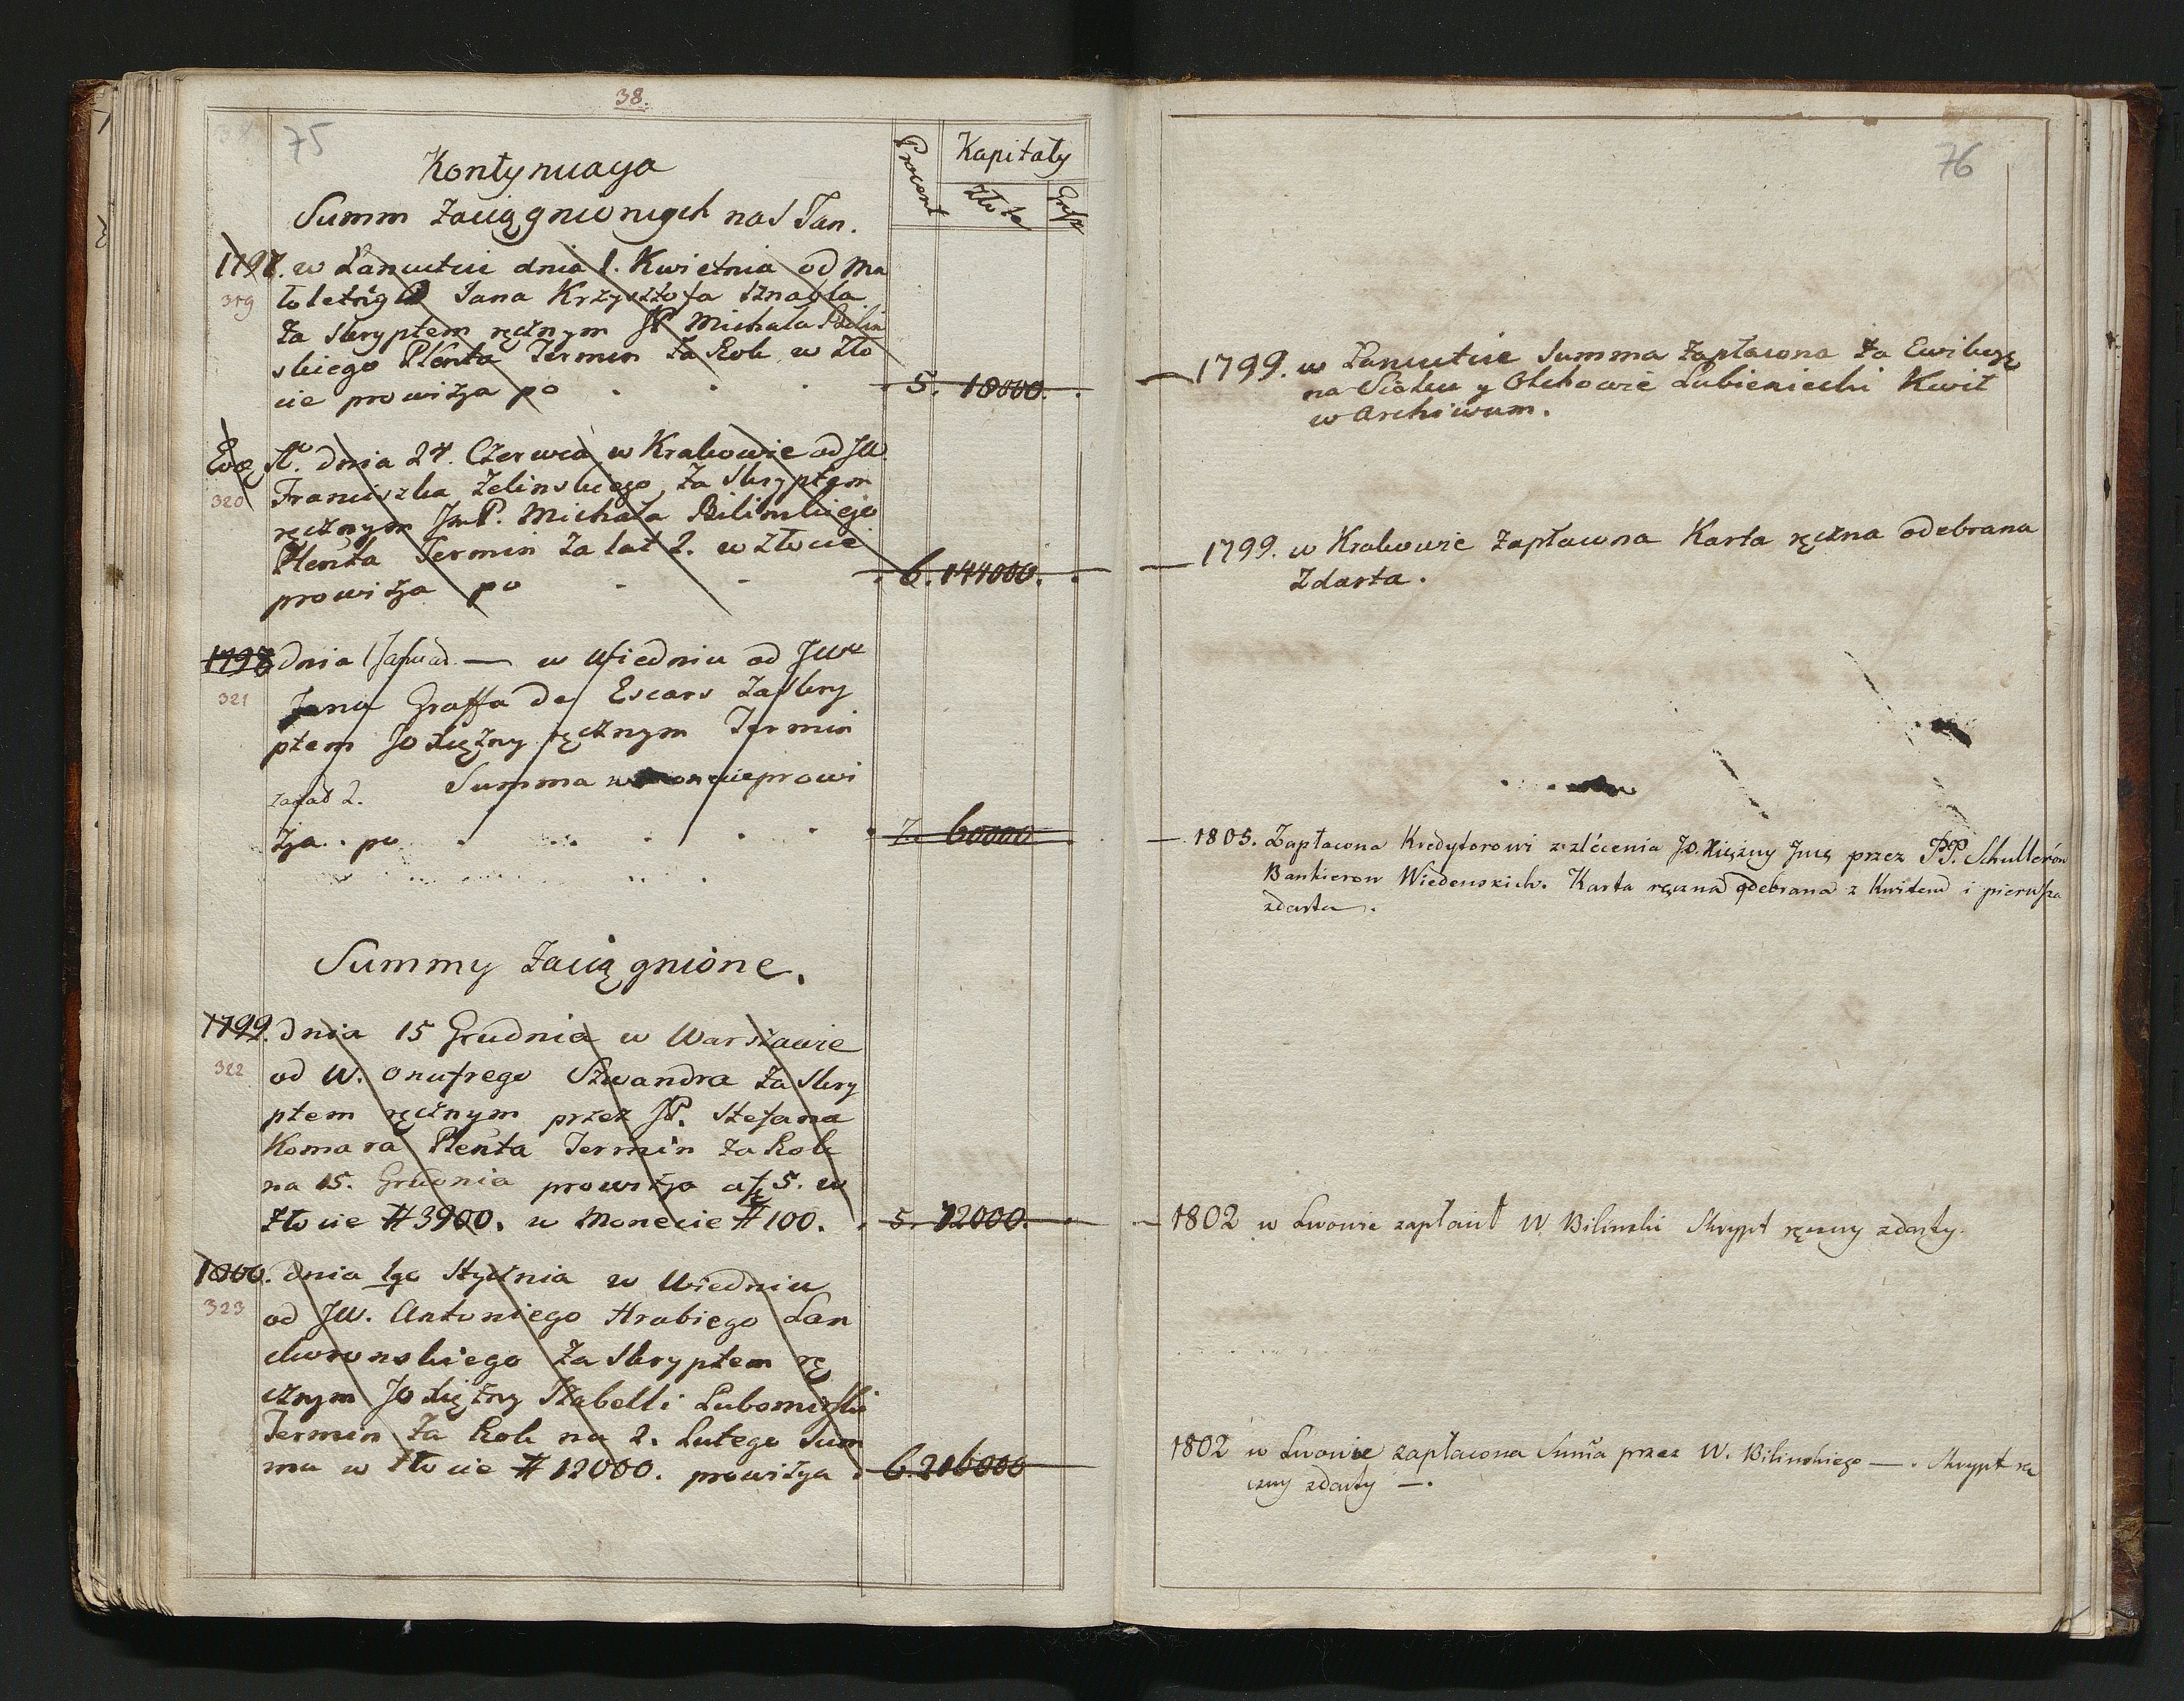 38.
75
Kontynuacya
Summ zaciągnionych na S Jan.
Procent
Kapitały
Złote
1798. w Łancucie dnia 1. Kwietnia od Ma
319
łoletnig Jana Krzysztofa Sznabla
za Skryptem ręcznym JP Michała Bilin
skiego Plenta Termin za Rok w Zło
cie prowizya po . . . . 5. 18000. .
Eod. A° dnia 24. Czerwca w Krakowie od JW
320
Franciszka Zelinskiego, za Skryptem
ręcznym JmP. Michała Bilinskiego
Plenta Termin za lat 2. w złocie
prowizya po - - . 6. 144000. .
1798 dnia w Wiedniu od JWo
321
Jana Graffa de Escars za Skry
ptem JO Xiężny ręcznym Termin
za lat 2. Summa w monecie prowi
zya . po . . . . . . 7. 60000
Summy zaciągnione.
1799. dnia 15 Grudnia w Warszawie
322
od W. Onufrego Szwandra za Skry
ptem ręcznym przez JP. Stefana
Komara Plenta Termin za Rok
na 15. Grudnia prowizya a 5. w
złocie # 3900. w Monecie # 100. . 5. 72000. .
1800. dnia 1go Stycznia w Wiedniu
323
od JW. Antoniego Hrabiego Lan
ckoronskiego za Skryptem rę
cznym JO Xiężny Izabelli Lubomirski
Termin za Rok na 2. Lutego Sum
ma w złocie # 12000. prowizya . 6. 216000
76
— 1799. w Łancucie Summa zapłacona za Ewikcyę
na Siołcu y Olchowie Lubieniecki Kwit
w Archiwum.
— 1799. w Krakowie zapłacona Karta ręczna odebrana
zdarta.
— 1805. Zapłacona Kredytorowi z zlécenia JO. Xiężny Jmcę przez PP. Schullerów
Bankierow Wiedenskich. Karta ręczna odebrana z Kwitem i pierwsza
zdarta.
— 1802 w Lwowie zapłacił W Bilinski Skrypt ręczny zdarty.
1802 w Lwowie zapłacona Suma przez W. Bilinskiego —. Skrypt rę
czny zdarty —.